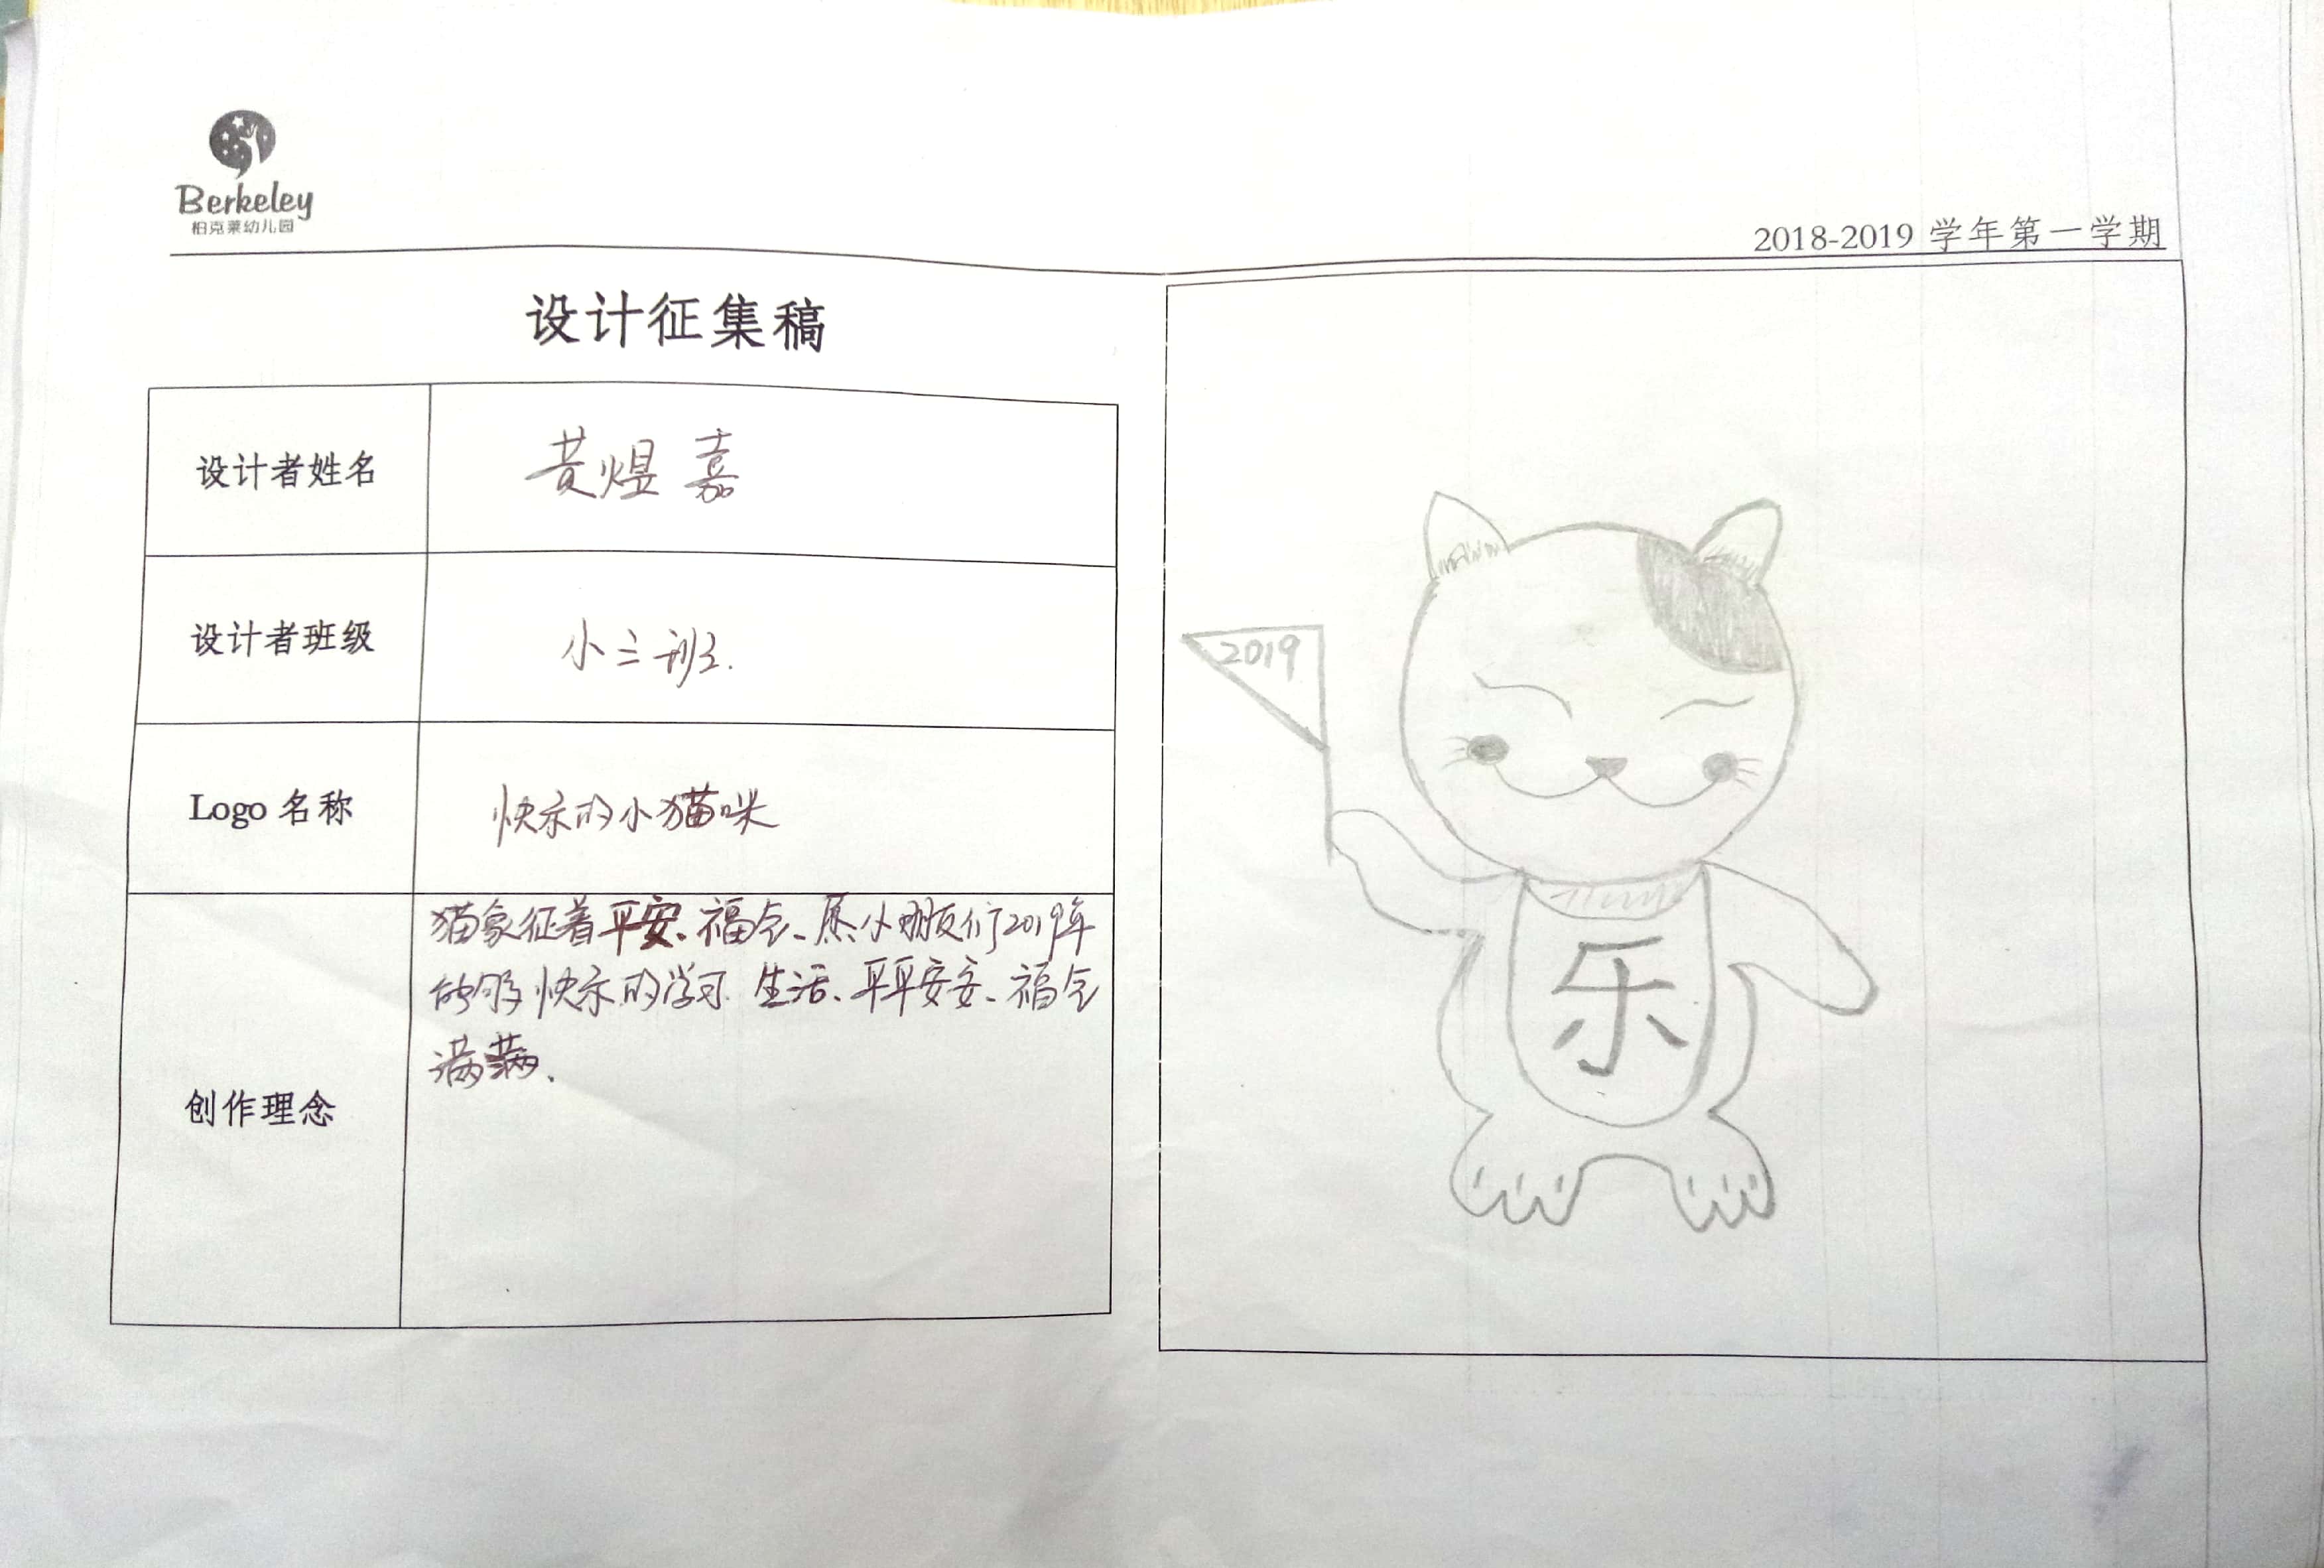 Berkeley
柏克莱幼儿园
2018-2019 学年第一学期
设计征集稿
设计者姓名
黄煜嘉
设计者班级
小三班.
Logo 名称
快乐的小猫咪
创作理念
猫象征着平安、福气、愿小朋友们2019年
能够快乐的学习 生活、平平安安、福气
满满、
2019
乐